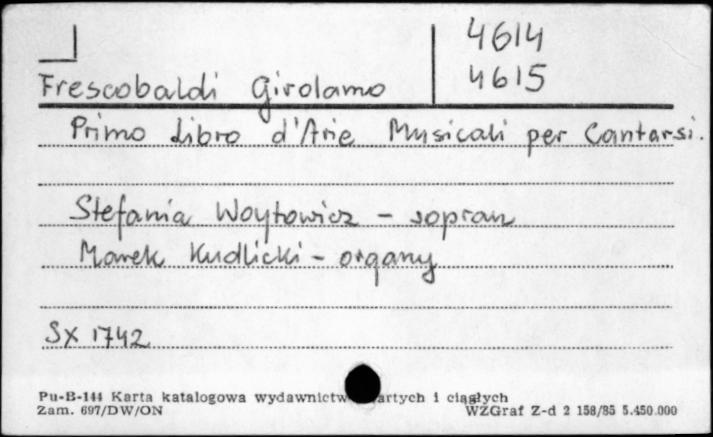 4614
Frescobaldi Girolamo 4615
Primo Libro d'Arie Musicali per Cantarsi.
Stefania Woytowicz - sopran
Marek Kudlicki - organy
SX 1742
Pu-B-144 Karta katalogowa wydawnictw artych i ciągłych
Zam. 697/DW/ON WZGraf Z-d 2 158/85 5.450.000